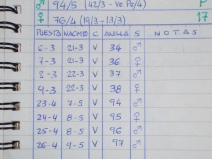 ♂ 94/5 (42/3 - Ve Pe/4) P
♀ 76/4 (19/3-13/3) 17
PUESTA NACIDO C ANILLA S NOTAS
6-3 21-3 V 34 ♂
7-3 21-3 V 36 ♀
2-3 22-3 V 37 ♂
4-3 22-3 V 38 ♀
23-4 7-5 V 94 ♂
24-4 8-5 V 95 ♀
25-4 8-5 V 96 ♂
26-4 9-5 V 97 ♂